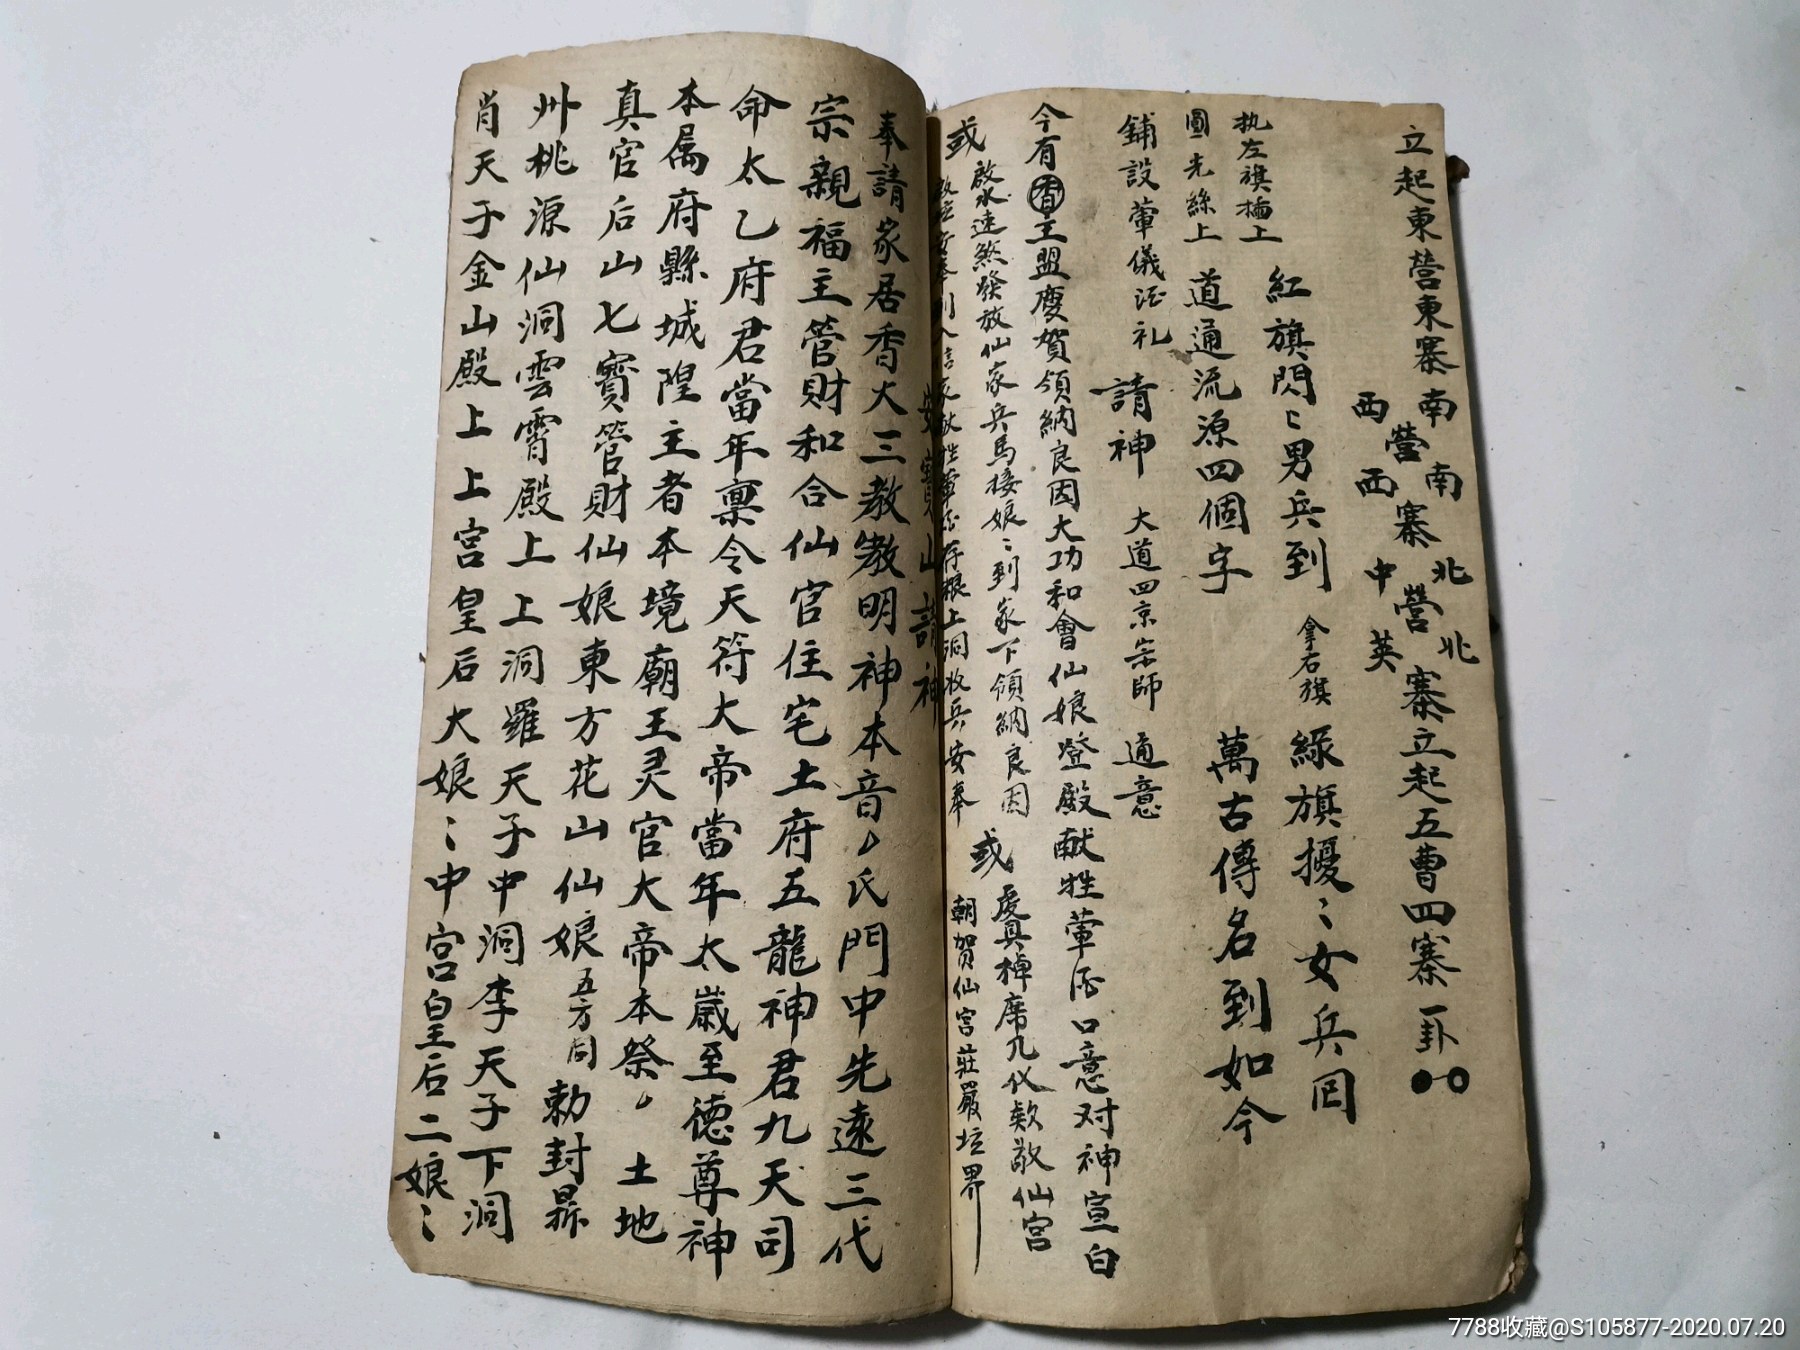 立起東營東寨 南南 營寨 西西 北北 營 中英 寨立起五曹四寨一卦
紅旗閃〻男兵到 拿右旗 綠旗擾〻女兵回
执左旗插上
圓光絲上 道通流源四個字 萬古傳名到如今
鋪設葷儀酒礼 請神 大道四京宗師 通意
今有香王盟慶賀領納良因大功和會仙娘登殿献牲葷酒口意对神宣白
或 啟水速煞發放仙家兵馬接娘〻到家下領納良因 或 虔具棹席九代欵敬仙宮
存粮上洞收兵安奉 朝贺仙宮莊嚴坛界
山請神
奉請家居香火三教教明神本音厶氏門中先遠三代
宗親福主管財和合仙官住宅土府五龍神君九天司
命太乙府君當年稟令天符大帝當年太歲至德尊神
本属府縣城隍主者本境廟王灵官大帝本祭厶土地
真官后山七寶管財仙娘東方花山仙娘 五方同 勅封鼎
州桃源仙洞雲霄殿上上洞羅天子中洞李天子下洞
肖天子金山殿上上宮皇后大娘〻中宮皇后二娘〻
7788收藏@S105877-2020.07.20